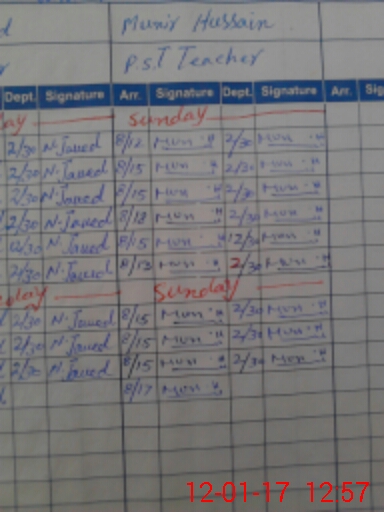 Munir Hussain
P.S.T Teacher
Dept. Signature Arr. Signature Dept. Signature Arr. Sig
Sunday
2/30 N.Javed 8/12 Mun.H 2/30 Mun.H
2/30 N.Javed 8/15 Mun.H 2/30 Mun.H
2/30 N.Javed 8/15 Mun.H 2/30 Mun.H
2/30 N.Javed 8/18 Mun.H 2/30 Mun.H
12/30 N.Javed 8/15 Mun.H 12/30 Mun.H
2/30 N.Javed 8/12 Mun.H 2/30 Mun.H
Sunday
2/30 N.Javed 8/15 Mun.H 2/30 Mun.H
2/30 N.Javed 8/15 Mun.H 2/30 Mun.H
2/30 N.Javed 8/15 Mun.H 2/30 Mun.H
8/17 Mun.H
12-01-17 12:57